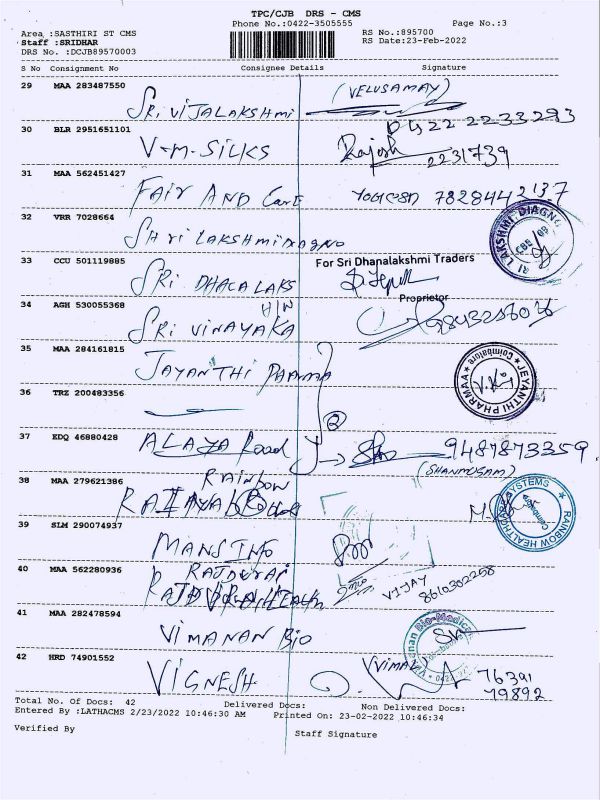 TPC/CJB DRS - CMS
Phone No.:0422-3505555
Page No.:3
Area :SASTHIRI ST CMS
RS No.:895700
Staff :SRIDHAR
RS Date:23-Feb-2022
DRS No. :DCJB89570003
S No Consignment No Consignee Details Signature
29 MAA 283487550
SRi VIJALAKSHMI (VELUSAMAY)
0422 2233293
30 BLR 2951651101
V-M-SILKS Rajesh
2231739
31 MAA 562451427
FAIR AND CARE 7828442137
32 VRR 7028664
SHRI LAKSHMI DIAGNO
RI LAKSHMI DIAGNO
CBE
33 CCU 501119885
For Sri Dhanalakshmi Traders
SRI
Proprietor
34 AGH 530055368
H/W
SRi VINAYAKA
35 MAA 284161815
JAYANTHI PARMA
JEYANTHI PHARMAA
Coimbatore
36 TRZ 200483356
2
37 EDQ 46880428
Road 9487873359
(SHANMUGAM)
38 MAA 279621386
RAINBOW
RAINBOW HEALTHCARE SYSTEMS
Coimbatore
39 SLM 290074937
MANS INFO
40 MAA 562280936
RAJDURAI
VIJAY
8610302258
41 MAA 282478594
VIMANAN BIO
Vimanan Bio-Medical
(VIMAL)
42 HRD 74901552
VIGNESH
76391
79892
Total No. Of Docs: 42 Delivered Docs: Non Delivered Docs:
Entered By :LATHACMS 2/23/2022 10:46:30 AM Printed On: 23-02-2022 10:46:34
Verified By
Staff Signature